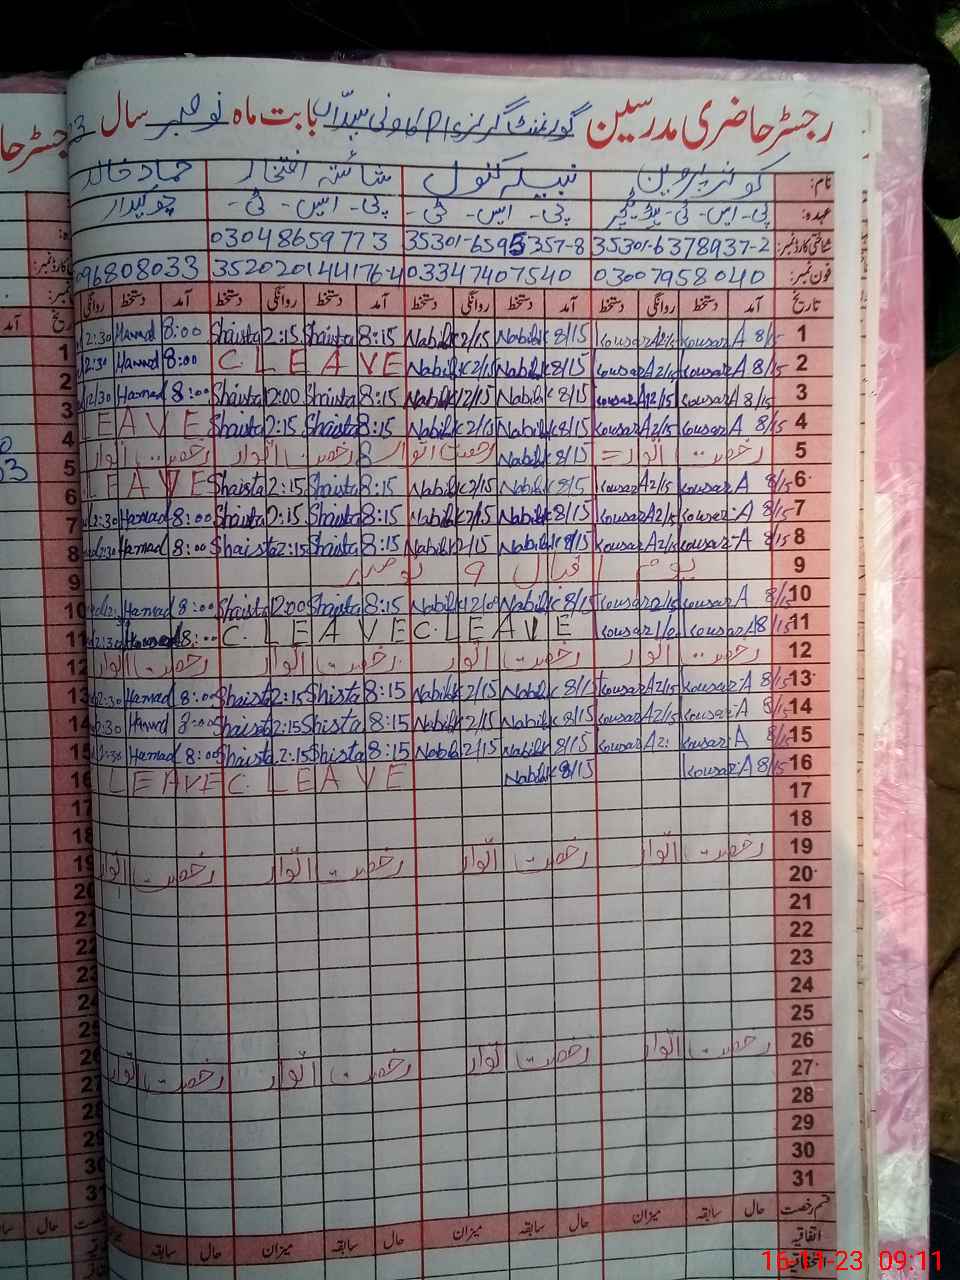 رجسٹر حاضری مدرسین گورنمنٹ گرلز بابت ماہ نومبر سال
نام: کوثر پروین نبیلہ کنول شائستہ افتخار حماد خالد
عہدہ: پی۔ ایس۔ ٹی پی۔ ایس۔ ٹی۔ پی۔ ایس۔ ٹی۔ چوکیدار
شناختی کارڈ نمبر: 35301-6378937-2 35301-6595357-8 03048659773
فون نمبر: 03007958040 03347407540 3520201441176-4 096808033
تاریخ آمد دستخط روانگی دستخط آمد دستخط روانگی دستخط آمد دستخط روانگی دستخط آمد دستخط روانگی
1 8/15 Kousar A Kousar A 8/15 Nabila K 2/15 Nabila K 8:15 Shaista 2:15 Shaista 8:00 Hamad 2:30
2 8/15 Kousar A 2/15 Kousar A 8/15 Nabila K 2/15 Nabila K C. LEAVE 8:00 Hamad 2:30
3 8/15 Kousar A 12/15 Kousar A 8/15 Nabila K 12/15 Nabila K 8:15 Shaista 12:00 Shaista 8:00 Hamad 12/30
4 8/15 Kousar A 2/15 Kousar A 8/15 Nabila K 2/15 Nabila K 8:15 Shaista 2:15 Shaista LEAVE
5 رخصت اتوار = 8/15 Nabila K رخصت اتوار 8 رخصت اتوار رخصت اتوار
6 8/15 Kousar A 2/15 Kousar A 8/15 Nabila K 2/15 Nabila K 8:15 Shaista 2:15 Shaista LEAVE
7 8/15 Kousar A 2/15 Kousar A 8/15 Nabila K 2/15 Nabila K 8:15 Shaista 2:15 Shaista 8:00 Hamad 2:30
8 8/15 Kousar A 2/15 Kousar A 8/15 Nabila K 2/15 Nabila K 8:15 Shaista 2:15 Shaista 8:00 Hamad 2:30
9 یوم اقبال 9 نومبر
10 8/15 Kousar A Kousar A 8/15 Nabila K Nabila K 8:15 Shaista 12:00 Shaista 8:00 Hamad
11 8/15 Kousar A Kousar C. LEAVE C. LEAVE 8:00 Hamad 2:30
12 رخصت اتوار رخصت اتوار رخصت اتوار رخصت اتوار
13 8/15 Kousar A 2/15 Kousar A 8/15 Nabila K 2/15 Nabila K 8:15 Shista 2:15 Shaista 8:00 Hamad 2:30
14 8/15 Kousar A 2/15 Kousar A 8/15 Nabila K 2/15 Nabila K 8:15 Shista 2:15 Shaista 8:00 Hamad 2:30
15 8/15 Kousar A Kousar A 8/15 Nabila K 2/15 Nabila 8:15 Shaista 2:15 Shaista 8:00 Hamad 2:30
16 8/15 Kousar A 8/15 Nabila K C. LEAVE LEAVE
17
18
19 رخصت اتوار رخصت اتوار رخصت اتوار رخصت اتوار
20
21
22
23
24
25
26 رخصت اتوار رخصت اتوار رخصت اتوار رخصت اتوار
27
28
29
30
31
قسم رخصت حال سابقہ میزان حال سابقہ میزان حال سابقہ میزان حال سابقہ میزان
اتفاقیہ
16-11-23 09:11